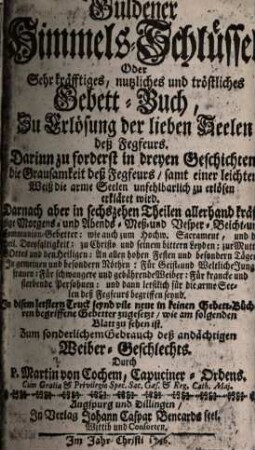 Guldener
Himmels-Schlüssel
Oder
Sehr kräfftiges, nutzliches und tröstliches
Gebett-Buch,
Zu Erlösung der lieben Seelen
deß Fegfeurs.
Darinn zu forderst in dreyen Geschichten
die Grausamkeit deß Fegfeurs, samt einer leichten
Weiß die arme Seelen unfehlbarlich zu erlösen
erklärt wird.
Darnach aber in sechszehen Theilen allerhand kräf-
tige Morgens- und Abends- Meß- und Vesper- Beicht- und
Communion-Gebetter: wie auch zum Hochw. Sacrament, und
Heil. Dreyfaltigkeit: zu Christo und seinem bittern Leyden: zur Mutter
Gottes und den Heiligen: An allen hohen Festen und besondern Tägen
In gemeinen und besondern Nöthen: Für Geist- und Weltliche Jung-
frauen: Für schwangere und gebährende Weiber: Für krancke und
sterbende Persohnen: und dann letstlich für die arme See-
len deß Fegfeurs begriffen seynd.
In disem letstern Truck seynd vile neue in keinen Gebett-Büch-
ern begriffene Gebetter zugesetzt, wie am folgenden
Blatt zu sehen ist.
Zum sonderlichem Gebrauch deß andächtigen
Weiber-Geschlechts.
Durch
P. Martin von Cochem, Capuciner-Ordens.
Cum Gratia & Privilegio Spec. Sac. Cæs. & Reg. Cath. Maj.
Augspurg und Dillingen,
In Verlag Johann Caspar Bencards seel.
Wittib und Consorten,
Im Jahr Christi